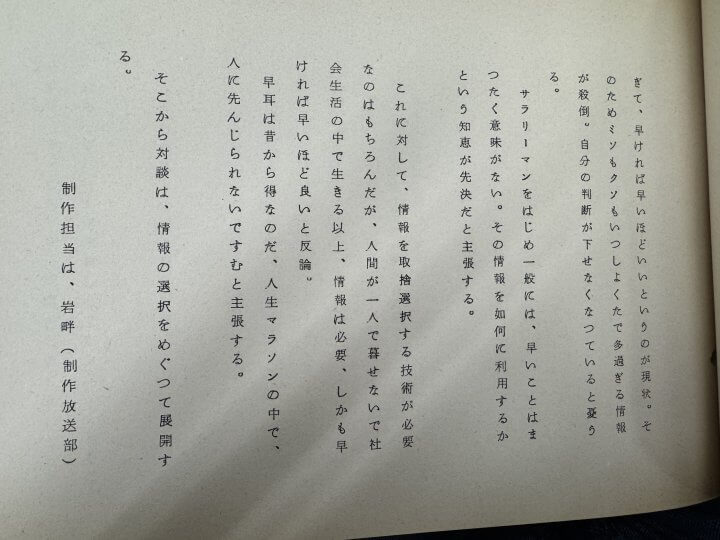 ぎて、早ければ早いほどいいというのが現状。そ
のためミソもクソもいつしよくたで多過ぎる情報
が殺倒。自分の判断が下せなくなつていると憂う
る。
サラリーマンをはじめ一般には、早いことはま
つたく意味がない。その情報を如何に利用するか
という知恵が先決だと主張する。
これに対して、情報を取捨選択する技術が必要
なのはもちろんだが、人間が一人で暮せないで社
会生活の中で生きる以上、情報は必要、しかも早
ければ早いほど良いと反論。
早耳は昔から得なのだ、人生マラソンの中で、
人に先んじられないですむと主張する。
そこから対談は、情報の選択をめぐつて展開す
る。
制作担当は、岩畔（制作放送部）